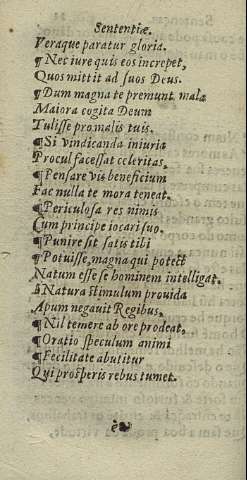 Sententiæ.
Veraque paratur gloria.
¶ Nec iure quis eos increpet,
Quos mittit ad suos Deus.
¶ Dum magna te premunt mala
Maiora cogita Deum
Tulisse pro malis tuis.
¶ Si vindicanda iniuria
Procul facessat celeritas,
¶ Pensare vis beneficium
Fac nulla te mora teneat.
¶ Periculosa res nimis
Cum principe iocari suo.
¶ Punire sit satis tibi
¶ Potuisse, magna qui potest
Natum esse se hominem intelligat.
Natura stimulum prouida
Apum negauit Regibus,
¶ Nil temere ab ore prodeat,
¶ Oratio speculum animi
¶ Fecilitate abutitur
Qui prosperis rebus tumet.